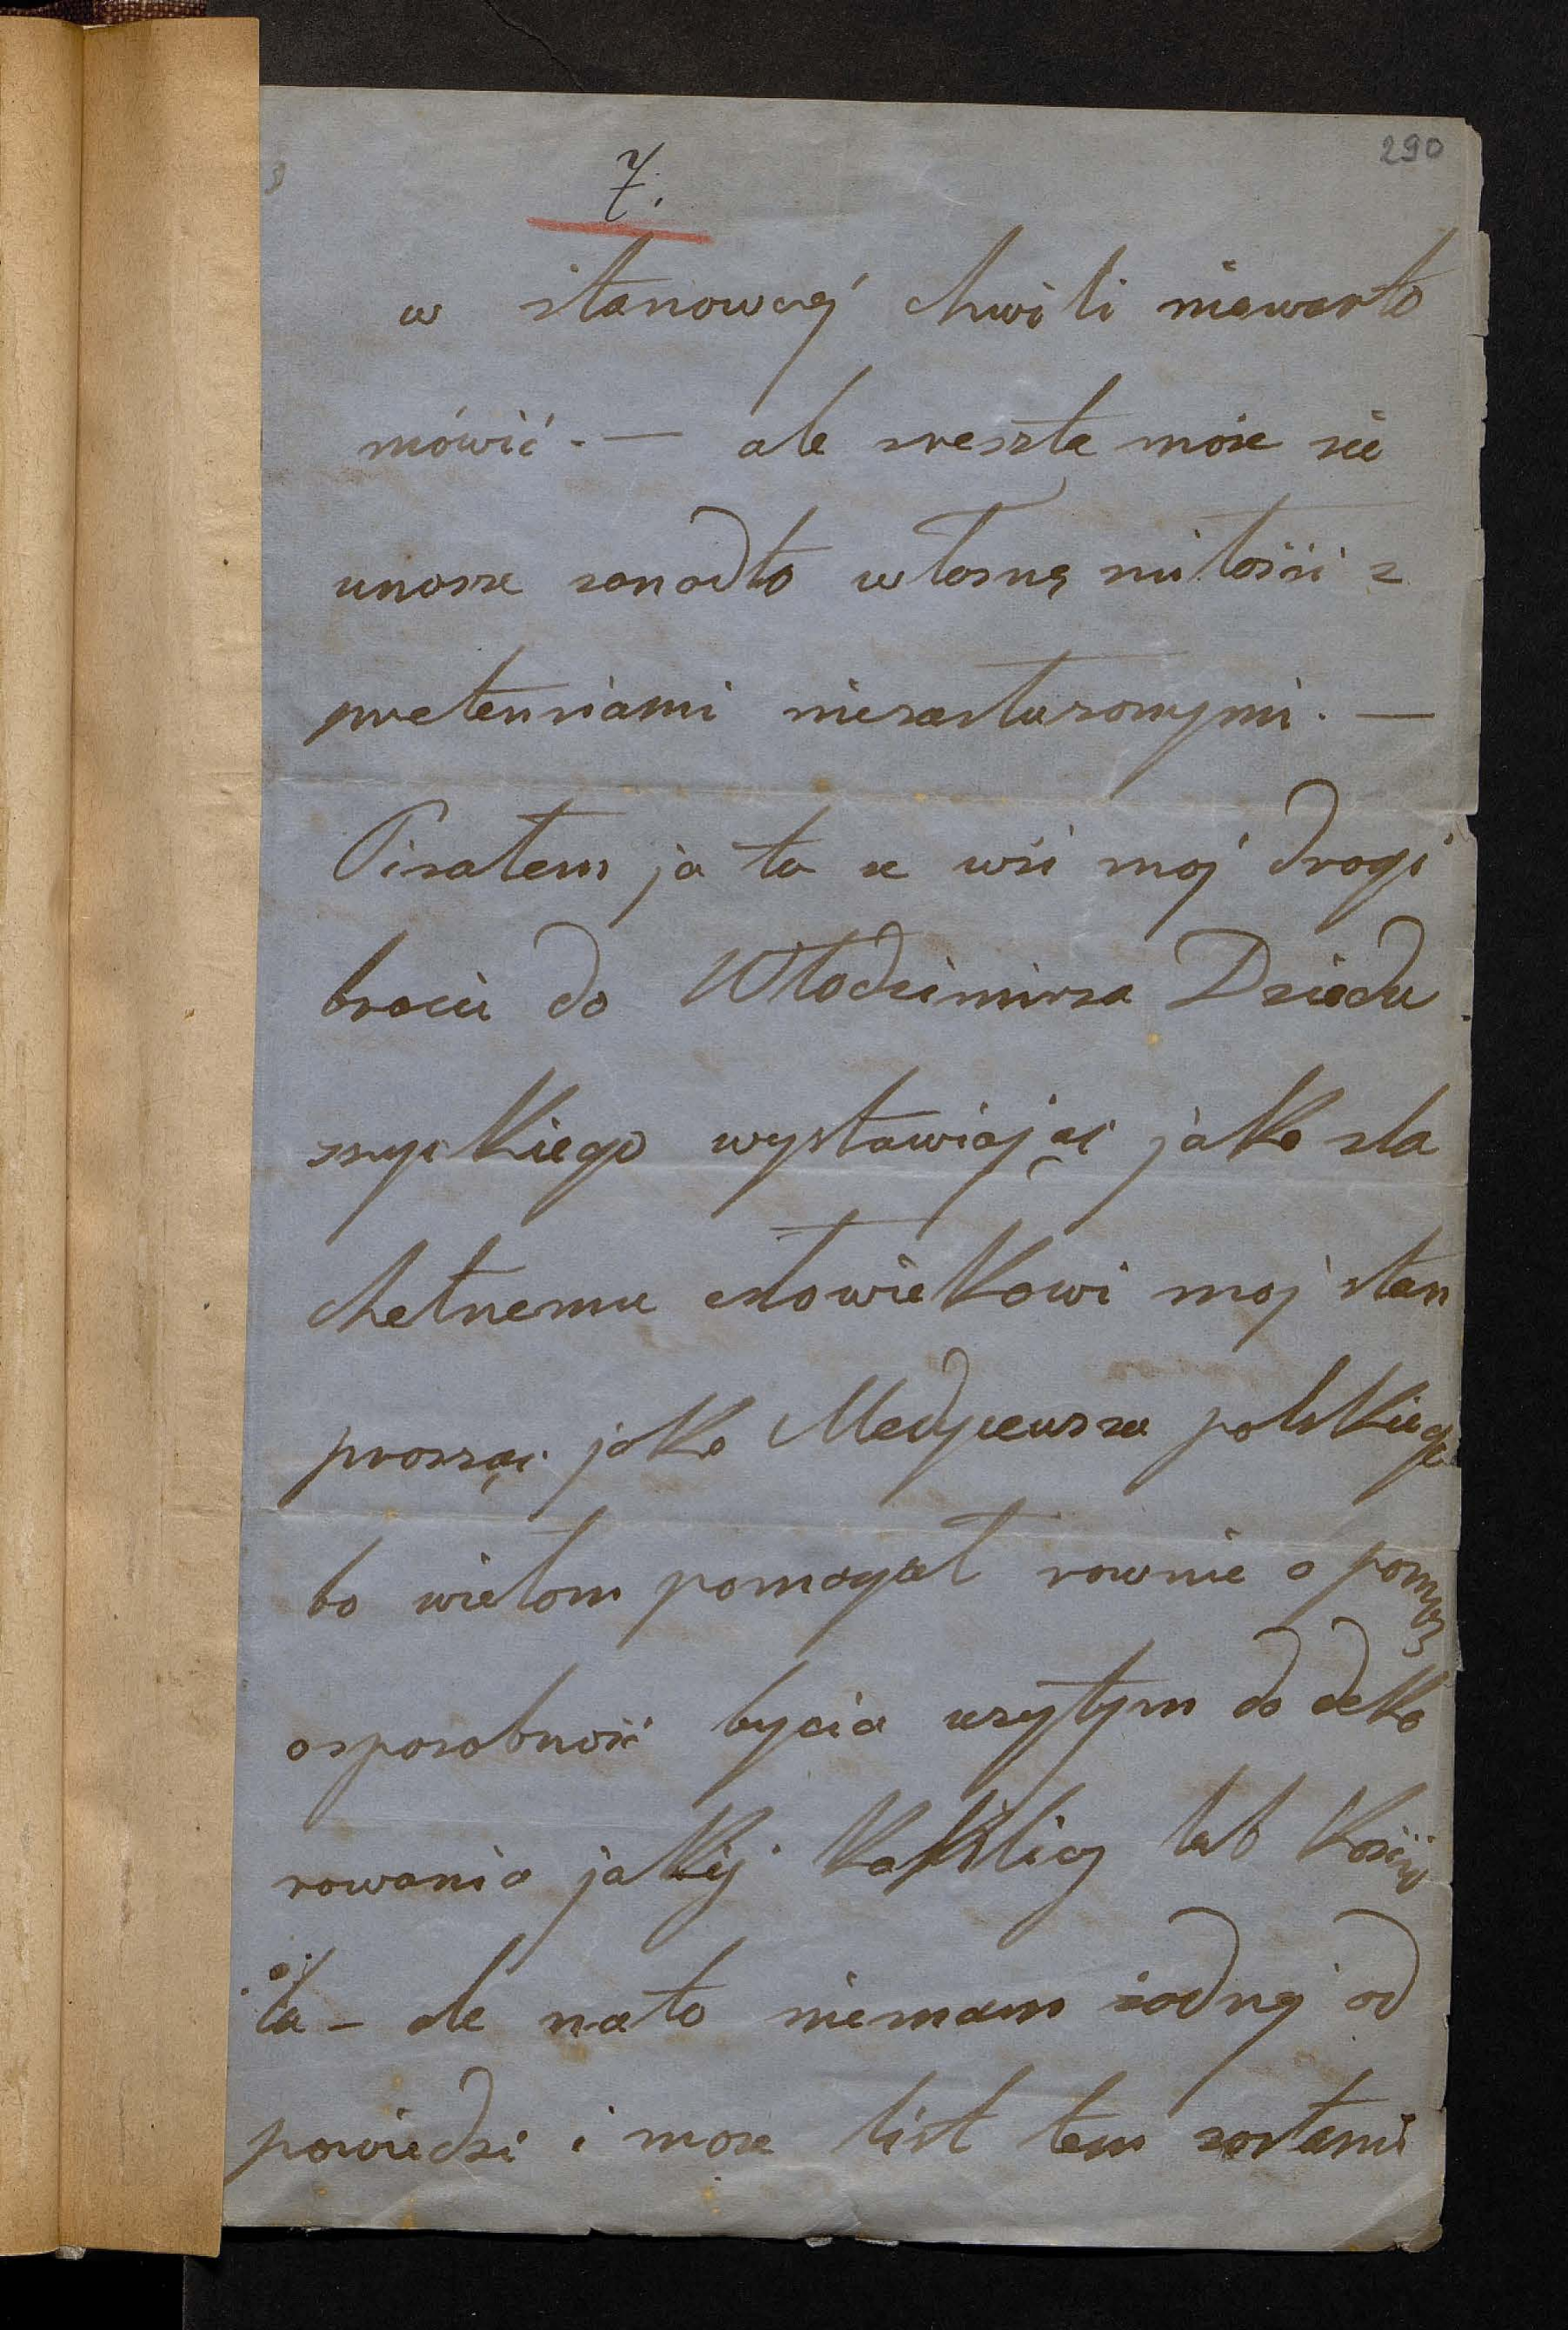 290
7.
w stanowczej chwili niewarto
mówić. — ale zresztą może się
unoszę zanadto własną miłości z
pretensiami niezasłużonymi. —
Pisałem ja tu ze wsi moj drogi
bracie do Włodzimirza Dziedu
szyckiego wystawiając jako szla
chetnemu człowiekowi moj stan
prosząc jako Meceneusza polskiego
bo wielom pomagał rownie o pomoc
osposobność bycia użytym do deko
rowania jakiej kaplicy lub kości
ła – ale na to niemam żadnej od
powiedzi i może list tem zostanie